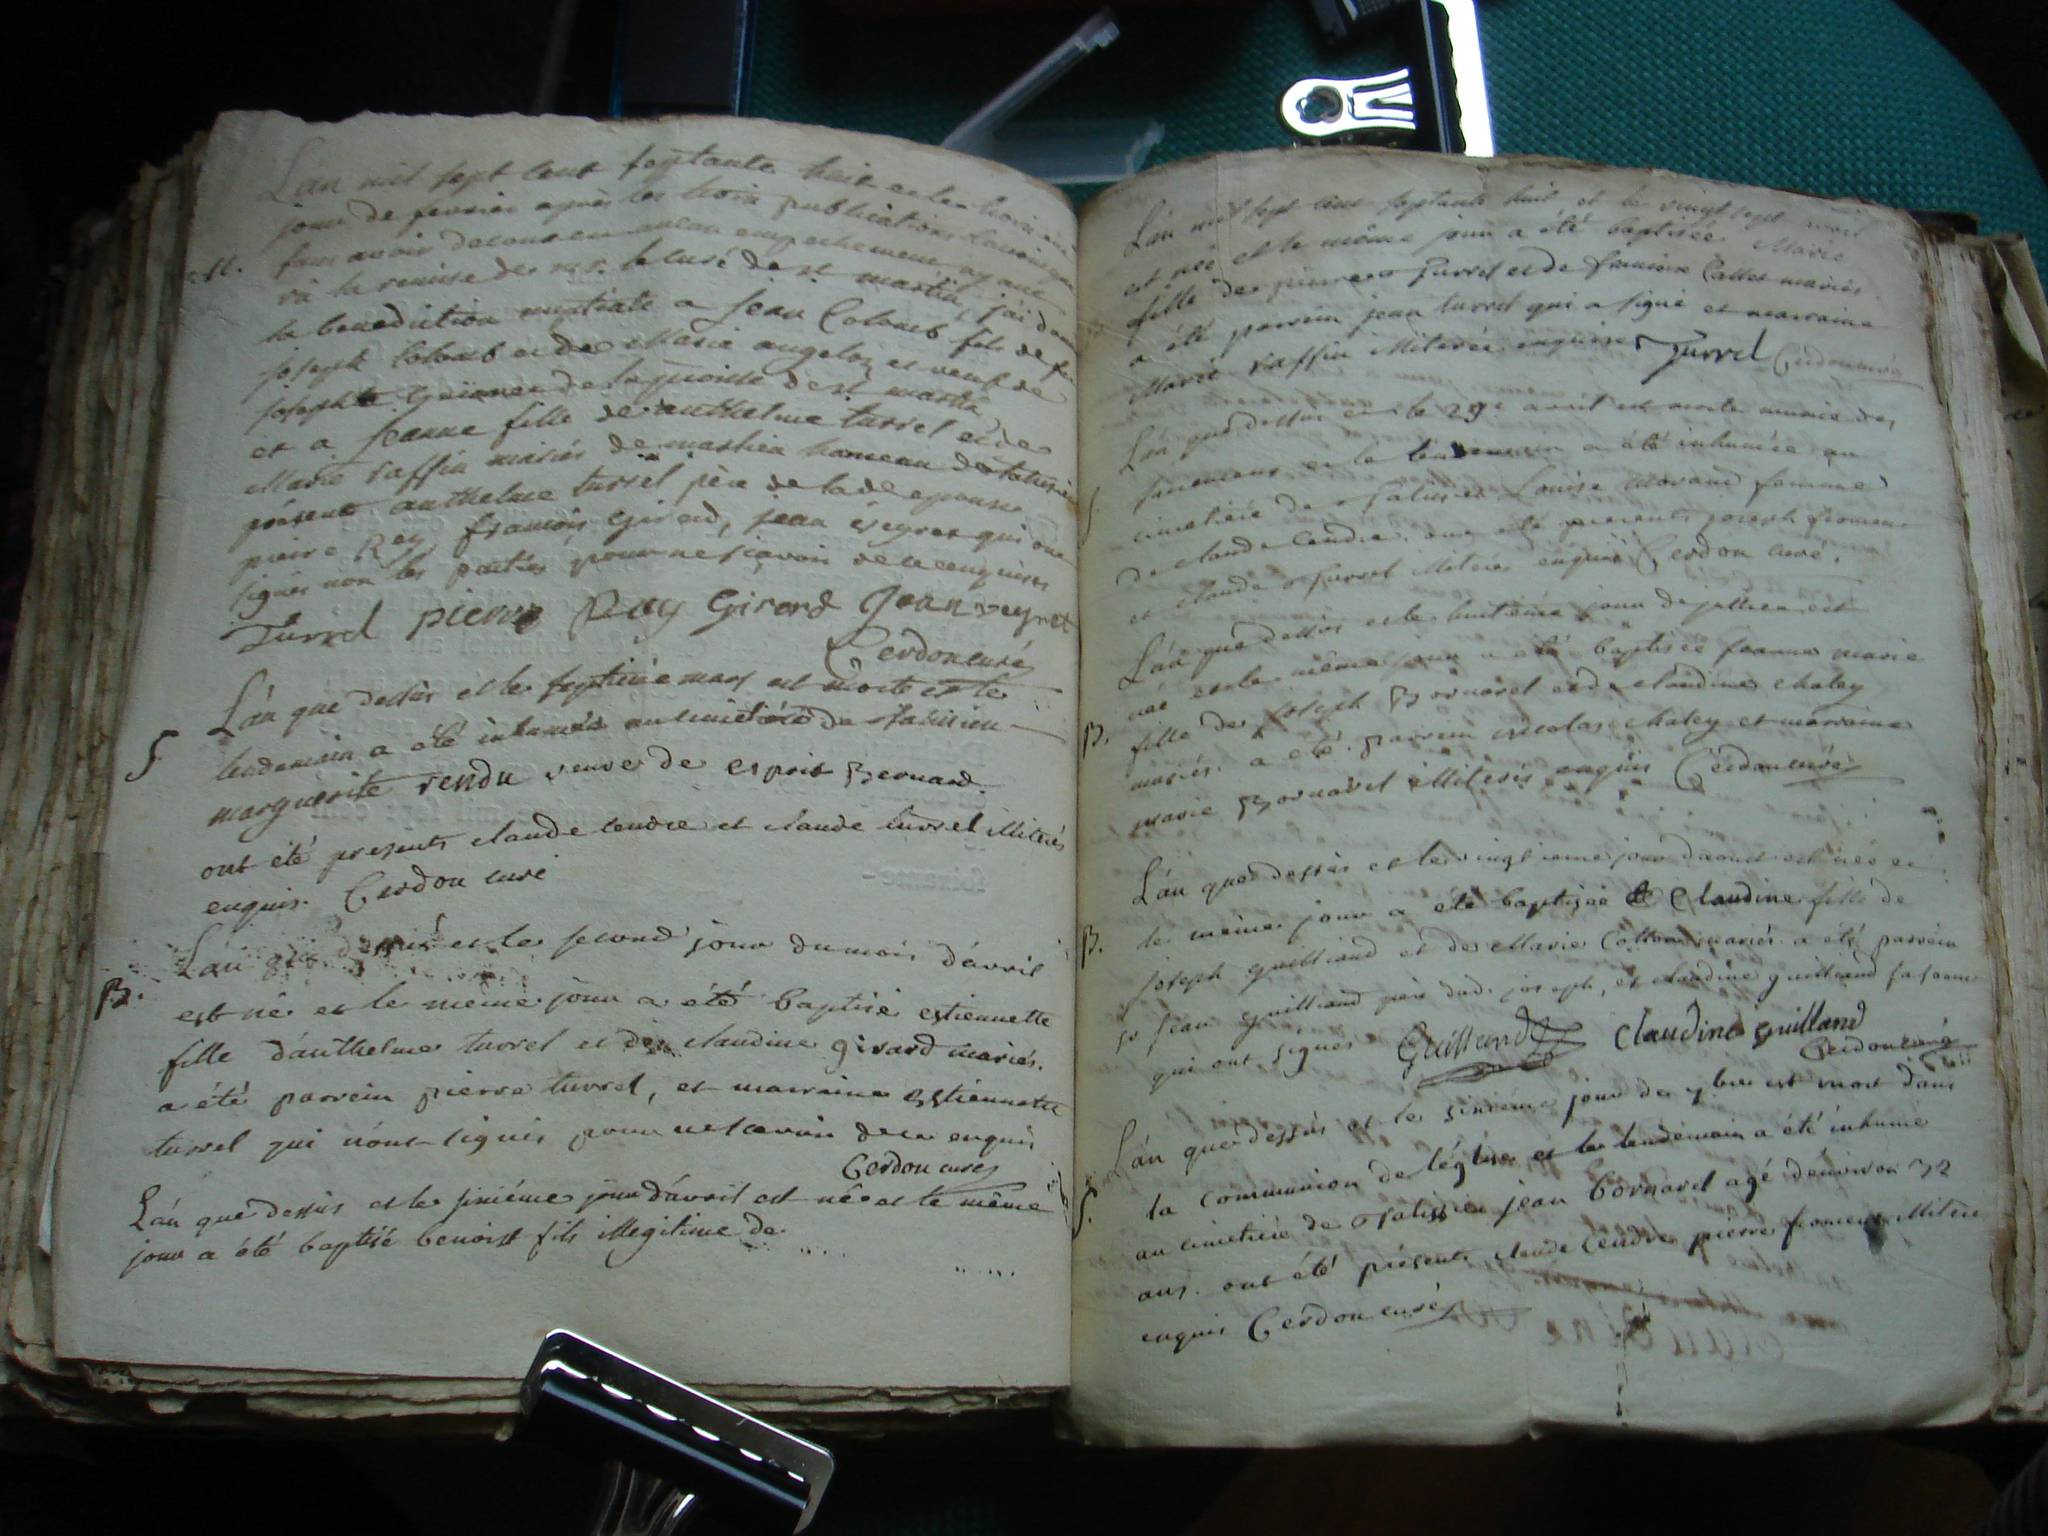 L'an mil sept cent septante huit et le trois
jour de fevrier après les trois publications
sans avoir decouvert aucun empechement ayant
M.
vû la remise de mr. le curé de st martin, j'ai donné
la benediction nuptiale a jean Colomb fils de feu
joseph Colomb et de Marie angeloz et veuf de
josephte de la paroisse de st martin
et a jeanne fille de anthelme turrel et de
Marie raffin mariés de hameau de talissieu
présents anthelme turrel père de ladte epouse
pierre Rey françois Girard, jean veyret qui ont
signés non les parties pour ne sçavoir de ce enquises
Turrel pierre Rey Girard Jean veyret
Cerdon curé
L'an que dessus et le septième mars est morte et le
S
lendemain a été inhumée au cimetière de Talissieu
marguerite rendu veuve de esprit Bernard
ont été presents claude cendre et claude turrel illiterés
enquis. Cerdon curé
L'an que dessus et le second jour du mois d'avril
B.
est né et le meme jour a été baptisé estiennette
fille d'anthelme turrel et de claudine girard mariés.
a été parrein pierre turrel, et marraine estiennette
turrel qui n'ont signés pour ne scavoir de ce enquis
Cerdon curé
L'an que dessus et le sixiéme jour d'avril est né et le même
jour a été baptisé benoist fils illegitime de ....
......
L'an mil sept cent septante huit et le vingt sept avril
est née et le même jour a été baptisée Marie
fille de pierre Turrel et de francoise Callet mariés
a été parrein jean turrel qui a signé et marraine
Marie raffin illiterée enquise Turrel Cerdon curé
L'an que dessus et le 29e avril est morte munie des
sacremens et le lendemain a été inhumée au
S
cimetière de Talissieu Louise Morand femme
de claude cendre. ont été presents joseph froment
et claude Turrel illiterés enquis Cerdon curé.
L'an que dessus et le huitième jour de juillet est
née et le même jour a été baptisée jeanne marie
B.
fille de joseph Bornarel et de claudine chaley
mariés. a été parrein nicolas chaley et marraine
marie Bornarel illiterés enquis Cerdon curé
L'an que dessus et le vingtieme jour d'aoust est née et
B.
le même jour a été baptisée Claudine fille de
joseph guilliand et de Marie mariés a été parrein
sr jean guilliand père dud. joseph, et claudine guilliand sa soeur
qui ont signés Guilliand Claudine guilland
Cerdon curé
L'an que dessus et le sixième jour de 7bre est mort dans
la communion de léglise et le lendemain a été inhumé
S.
au cimetière de Talissieu jean bornarel agé d'environ 32
ans. ont été présents claude Cendre pierre froment illiterés
enquis Cerdon curé